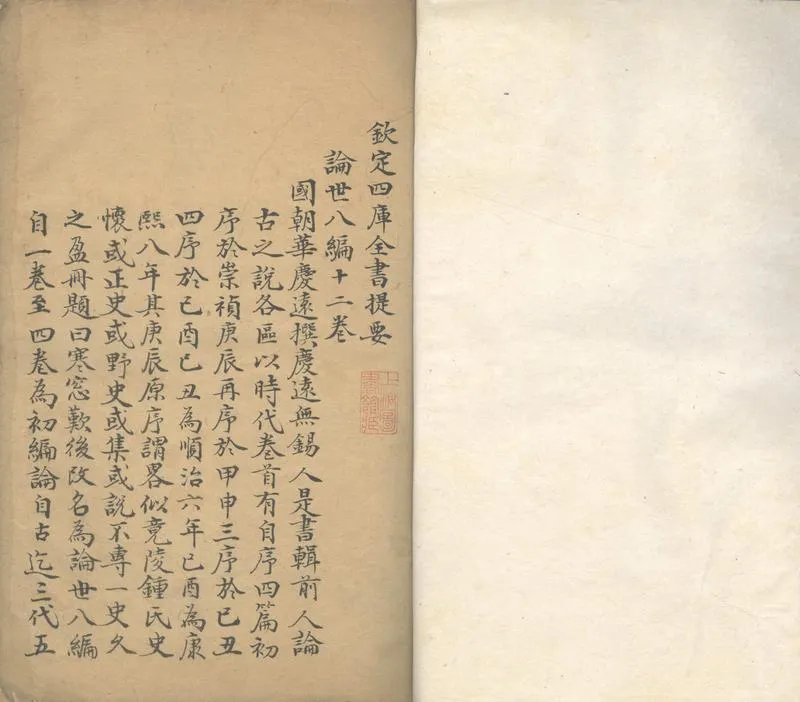 欽定四庫全書提要
論世八編十二卷
國朝華慶遠撰慶遠無錫人是書輯前人論
古之說各區以時代卷首有自序四篇初
序於崇禎庚辰再序於甲申三序於己丑
四序於己酉己丑為順治六年己酉為康
熙八年其庚辰原序謂畧似竟陵鍾氏史
懷或正史或野史或集或說不專一史久
之盈冊題曰寒窓歎後改名為論世八編
自一卷至四卷為初編論自古迄三代五
上海圖
書館藏